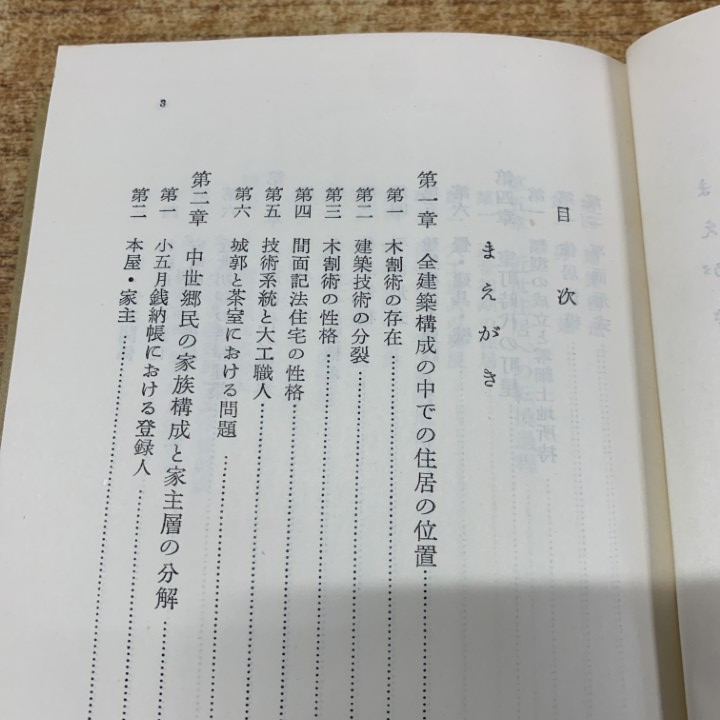 目次
まえがき
第一章 全建築構成の中での住居の位置
第一 木割術の存在
第二 建築技術の分裂
第三 木割術の性格
第四 間面記法住宅の性格
第五 技術系統と大工職人
第六 城郭と茶室における問題
第二章 中世郷民の家族構成と家主層の分解
第一 小五月銭納帳における登録人
第二 本屋・家主
3